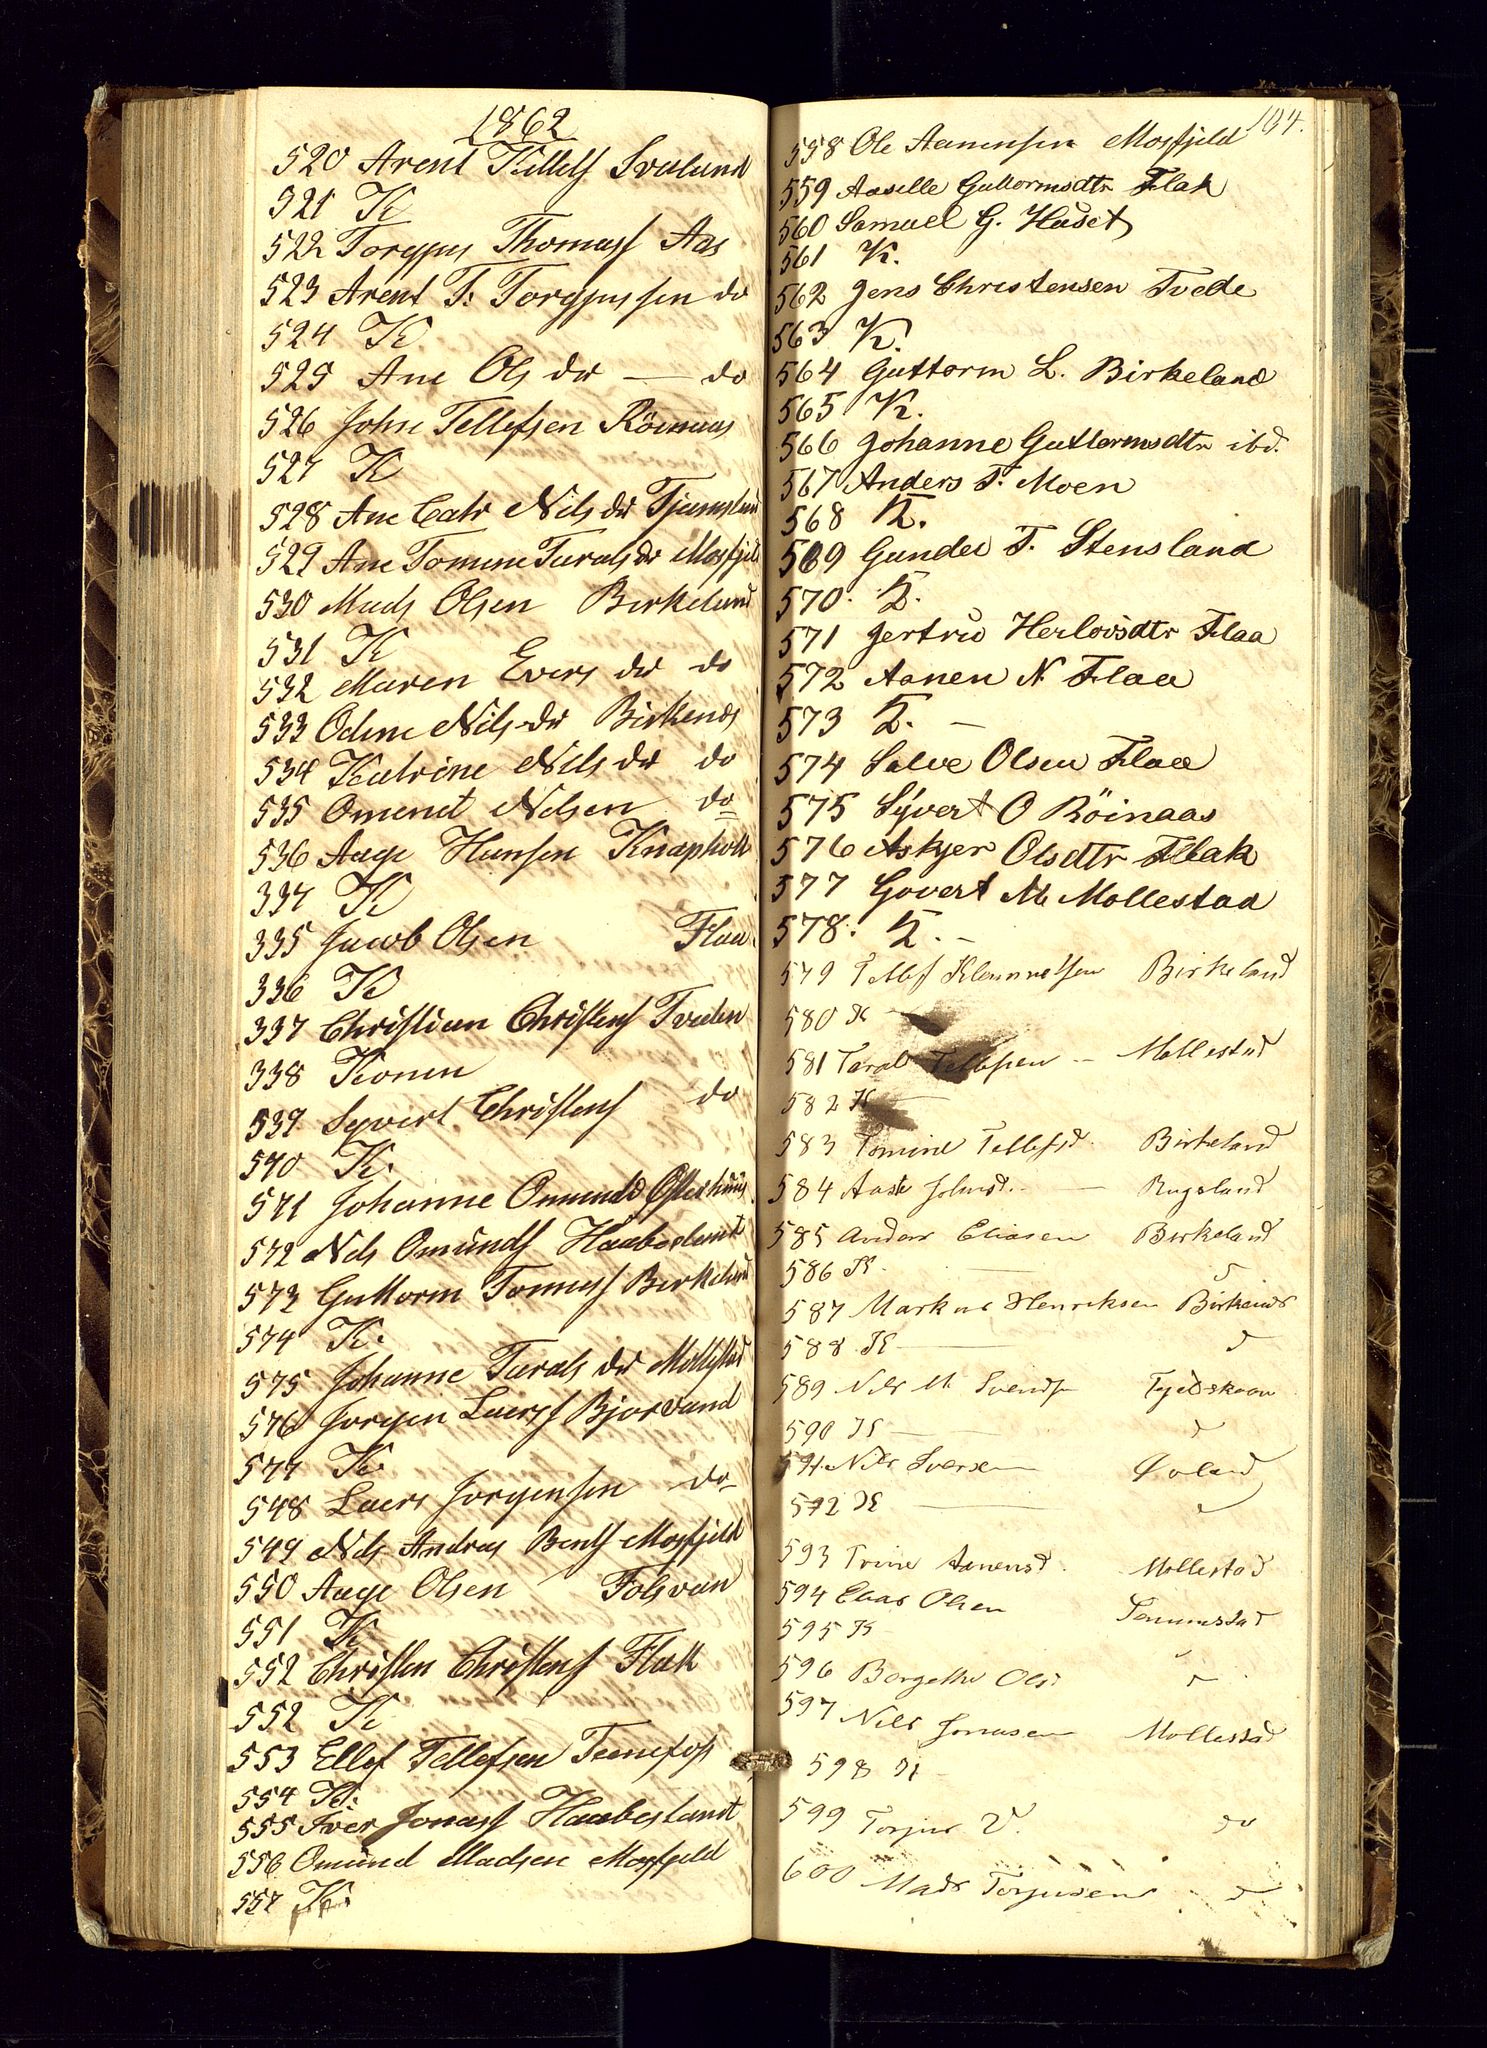 1862
520 Arent Tellefs Svaland
521 K
522 Torgjus Thomass Aas
523 Arent T: Torgjussen do
524 K
525 Ane Ols dtr — do
526 John Tellefsen Röinaas
527 K
528 Ane Catr Nils dtr Tjumsland
529 Ane Tomine Tarals dtr Mosfjeld
530 Mads Olsen Birkeland
531 K
532 Maren Evers dtr do
533 Odine Nils dtr Birkenes
534 Katrine Nils dtr do
535 Omend Nilsen do
536 Aage Hansen Knapholt
337 K
335 Jacob Olsen Flaa
336 K
337 Christian Christens Tveden
338 Konen
539 Syvert Christens do
540 K.
571 Johanne Omundsd Østerhuus
572 Nils Omunds Haabesland
573 Guttorm Tomass Birkeland
574 K.
575 Johanne Tarals dtr Mollestad
576 Jorgen Laerss Bjorvand
577 K.
548 Laers Jorgensen do
549 Nils Andreas Bents Mosfjeld
550 Aage Olsen Tolsvan
551 K
552 Christen Christens Flak
552 K
553 Ellef Tellefsen
554 K.
555 Iver Jonass Haabesland
556 Omund Madsen Mosfjeld
557 K.
104.
558 Ole Aanensen Mosfjeld
559 Aaselle Guttormsdtr Flak
560 Samuel G. Huset
561 K.
562 Jens Christensen Tvede
563 K.
564 Guttorm L. Birkeland
565 K.
566 Johanne Guttormsdtr ibd.
567 Anders T. Moen
568 K.
569 Gunder T. Stensland
570. K.
571 Gertrud Herlovsdtr Flaa
572 Aanen N Flaa
573 K. —
574 Salve Olsen Flaa
575 Syvert O Röinaas
576 Askjer Olsdtr Flak
577 Govert M Mollestad
578. K. -
579 Tellef Klemmetsen Birkeland
580 K —
581 Taral Tellefsen — Mollestad
582 K —
583 Tomine Tellefsd. Birkeland
584 Aaste Johnsd. — Rugsland
585 Anders Eliasen Birkeland
586 K. —
587 Markus Henriksen Birkenes
588 K —
589 Nils M. Svends
590 K —
591 Nils Iversen
592 K —
593 Trine Aanensd. Mollestad
594 Elias Olsen
595 K
596 Borgethe Olsd
597 Nils Jonasen Mollestad
598 K
599 Torjus V. do
600 Mads Torjusen